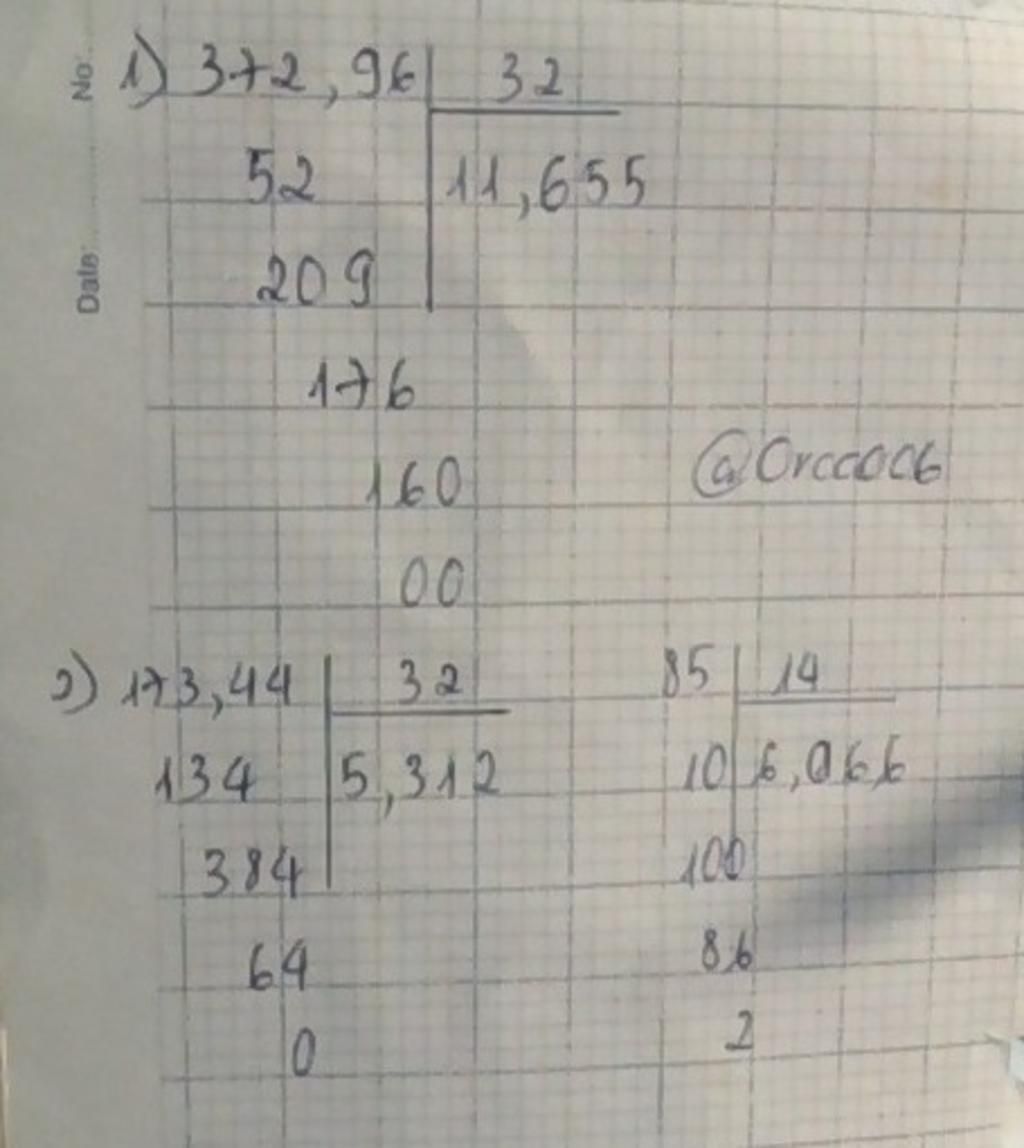 No:
Date:
1) 372,96 32
52 11,655
209
176
160
@Orcc0C6
00
2) 173,44 32 85 14
134 5,312 10 6,066
384 100
64 86
0 2